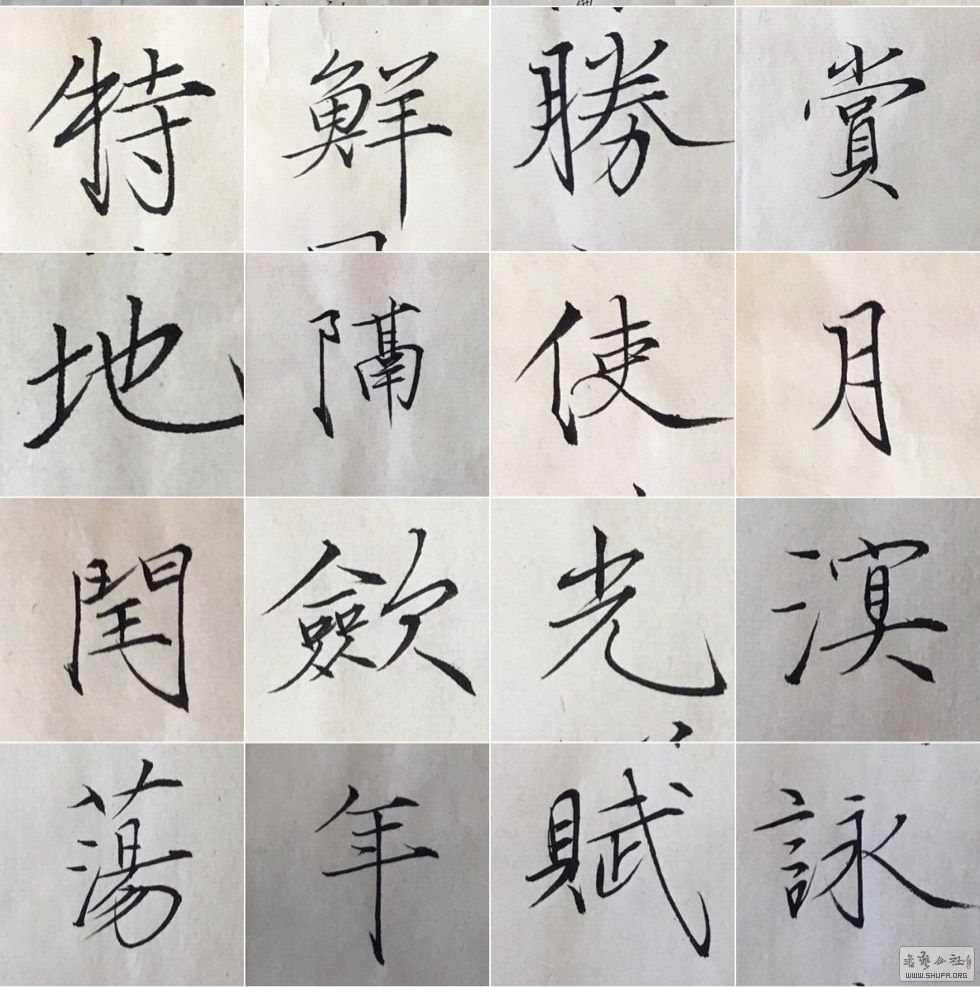 特鮮勝賞
地隔使月
閏斂光溟
蕩年賦詠
WWW.SHUFA.ORG